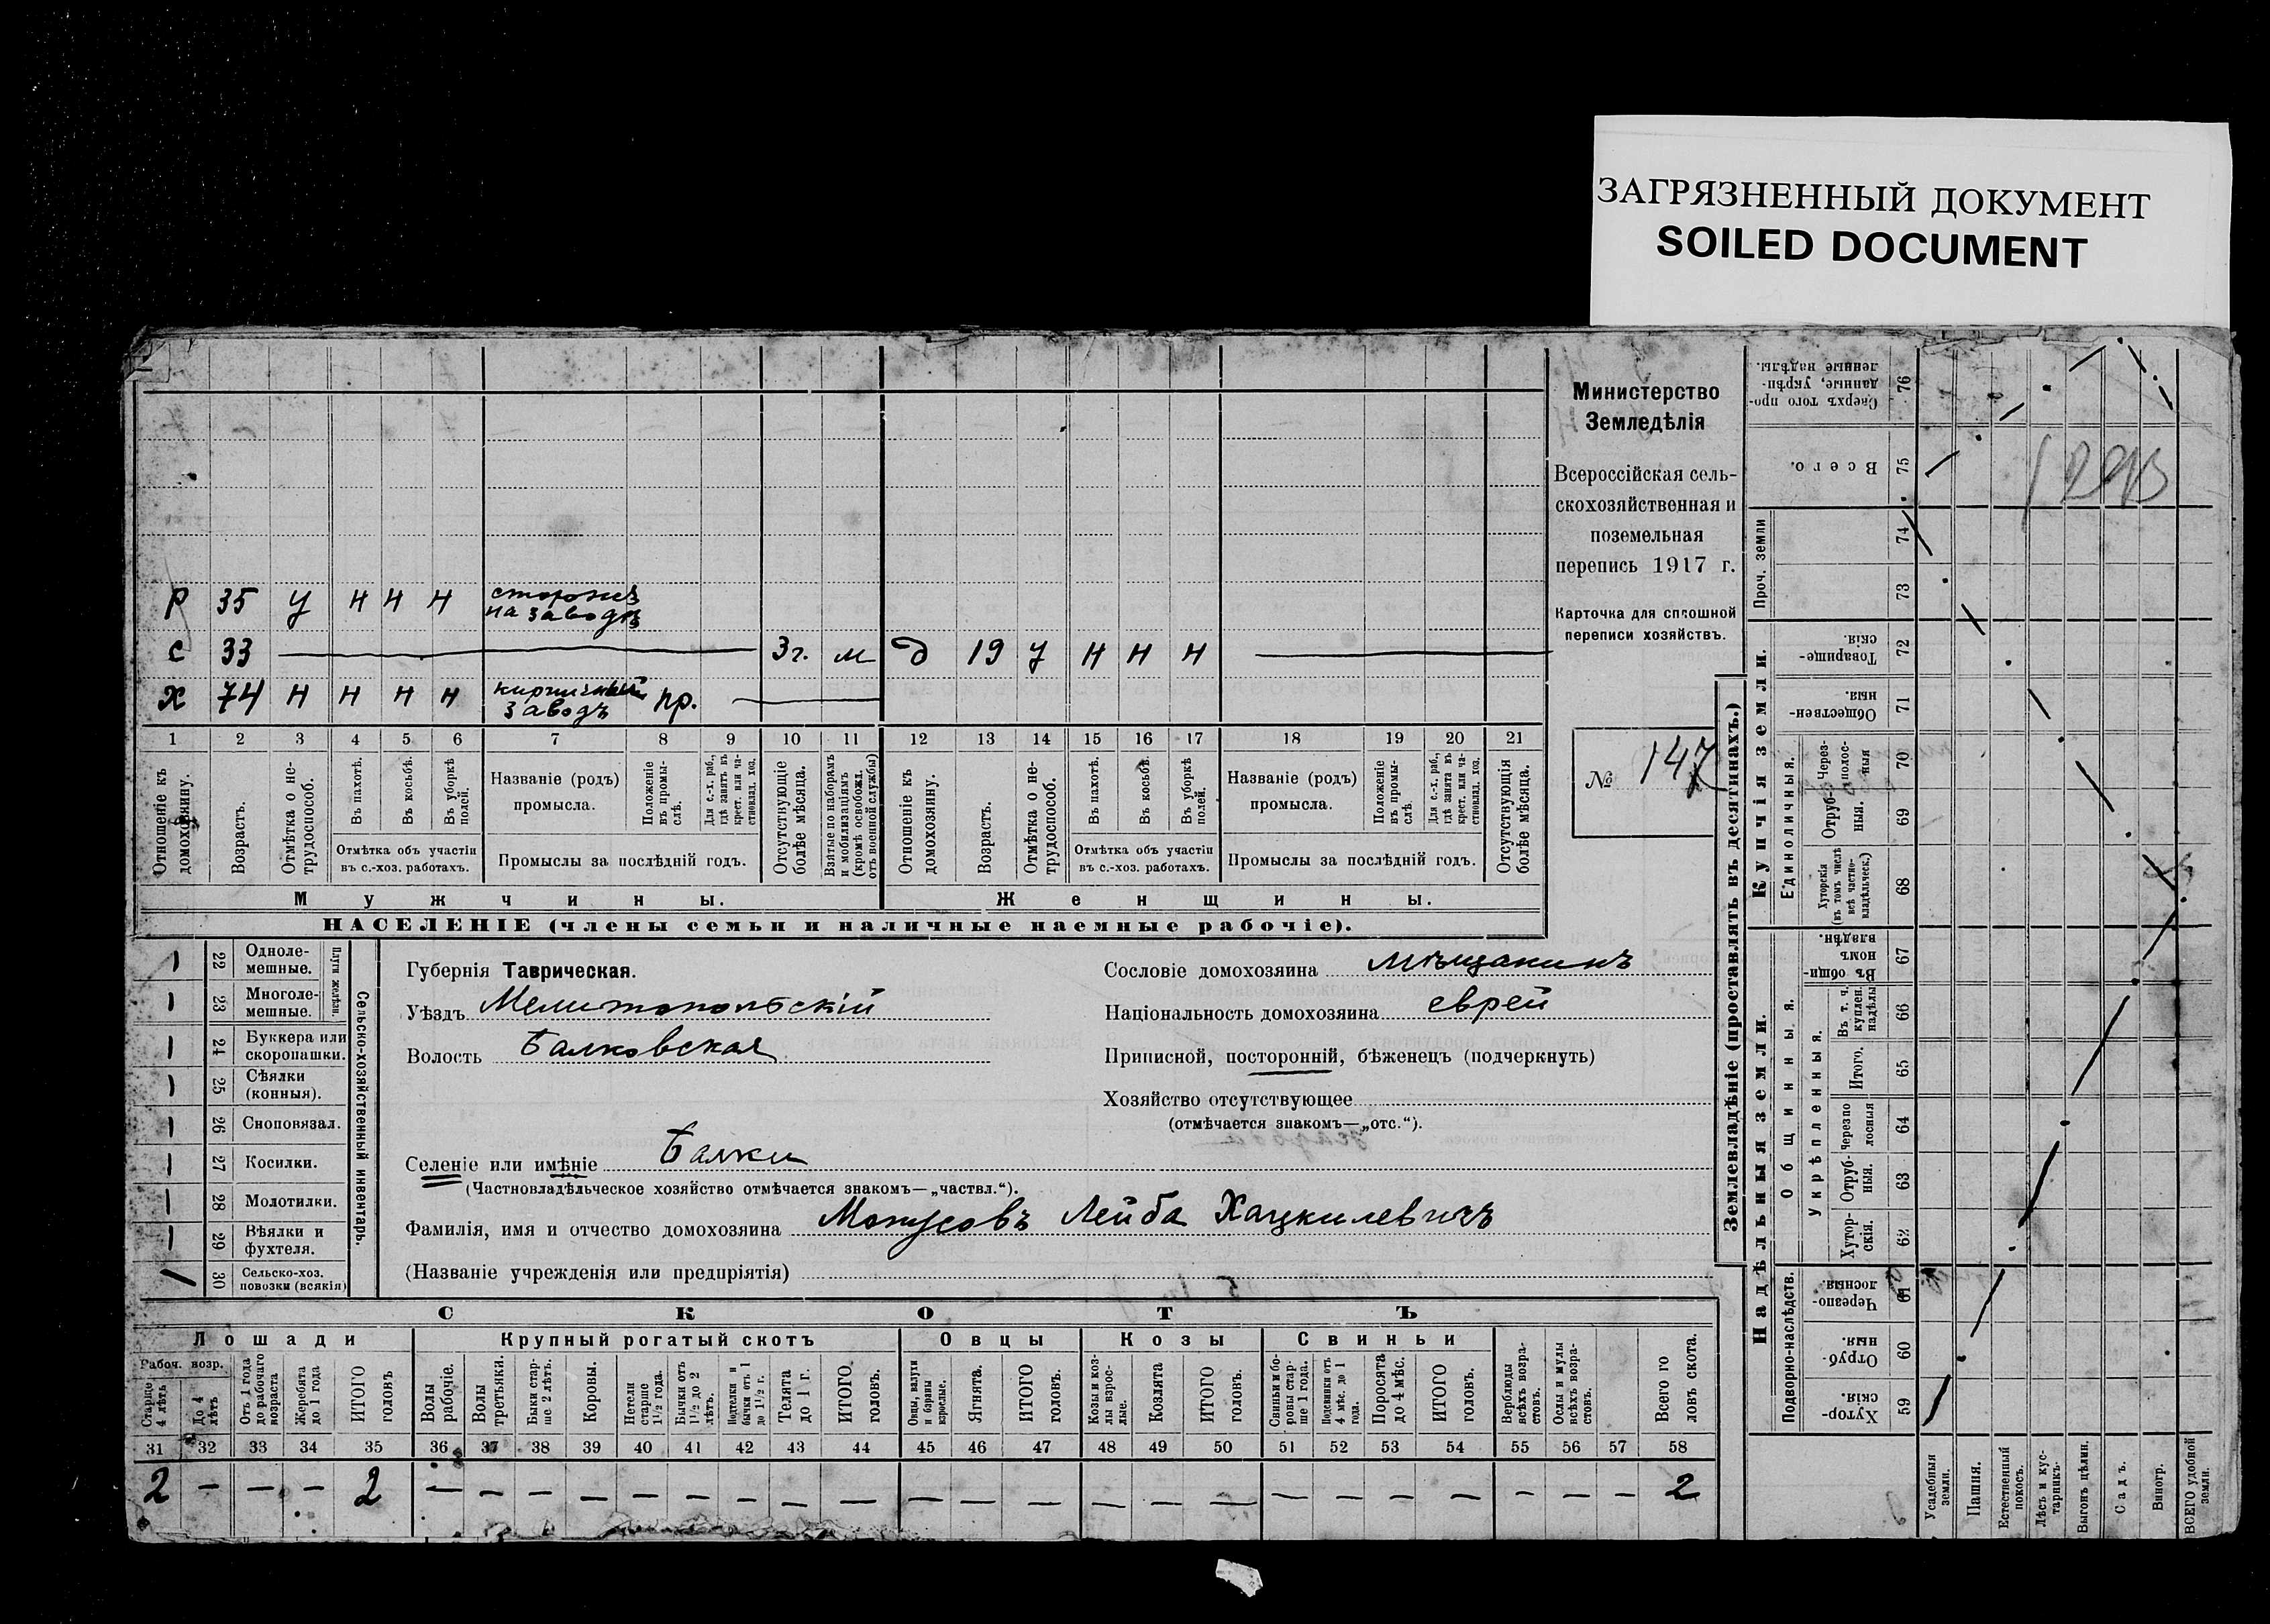 ЗАГРЯЗНЕННЫЙ ДОКУМЕНТ
SOILED DOCUMENT
Министерство
Земледѣлія
Всероссійская сель-
скохозяйственная и
поземельная
перепись 1917 г.
Карточка для сплошной
переписи хозяйствъ.
№ 147
Р 35 У Н Н Н сторожъ на заводѣ
С 33 — 3 г. м Д 19 У Н Н Н —
Х 74 Н Н Н Н кирпичный заводъ пр. —
1 2 3 4 5 6 7 8 9 10 11 12 13 14 15 16 17 18 19 20 21
Отношеніе къ домохозяину.
Возрастъ.
Отмѣтка о не-трудоспособ.
Въ пахотѣ.
Въ косьбѣ.
Въ уборкѣ полей.
Отмѣтка объ участіи
въ с.-хоз. работахъ.
Названіе (родъ)
промысла.
Положеніе въ промы-слѣ.
Для с.-х. раб., гдѣ занятъ въ крест. или ча-стновлад. хоз.
Промыслы за послѣдній годъ.
Отсутствующіе болѣе мѣсяца.
Взятые по наборамъ и мобилизаціямъ (кромѣ освобожд. отъ военной службы)
Отношеніе къ домохозяину.
Возрастъ.
Отмѣтка о не-трудоспособ.
Въ пахотѣ.
Въ косьбѣ.
Въ уборкѣ полей.
Отмѣтка объ участіи
въ с.-хоз. работахъ.
Названіе (родъ)
промысла.
Положеніе въ промы-слѣ.
Для с.-х. раб., гдѣ занята въ крест. или ча-стновлад. хоз.
Промыслы за послѣдній годъ.
Отсутствующія болѣе мѣсяца.
Мужчины.
Женщины.
НАСЕЛЕНІЕ (члены семьи и наличные наемные рабочіе).
22 Одноле-мешные.
23 Многоле-мешные.
Плуги желѣзн.
24 Буккера или скоропашки.
25 Сѣялки (конныя).
26 Сноповязал.
27 Косилки.
28 Молотилки.
29 Вѣялки и фухтеля.
30 Сельско-хоз. повозки (всякія)
Сельско-хозяйственный инвентарь.
Губернія Таврическая.
Уѣздъ Мелитопольскій
Волость Балковская
Сословіе домохозяина мѣщанинъ
Національность домохозяина еврей
Приписной, посторонній, бѣженецъ (подчеркнуть)
Хозяйство отсутствующее
(отмѣчается знакомъ—„отс.“).
Селеніе или имѣніе Балки
(Частновладѣльческое хозяйство отмѣчается знакомъ—„частвл.“).
Фамилія, имя и отчество домохозяина Лейба Хацкилевичъ
(Названіе учрежденія или предпріятія)
СКОТЪ
Лошади
Крупный рогатый скотъ
Овцы
Козы
Свиньи
Рабоч. возр.
Старше 4 лѣтъ
До 4 лѣтъ
Отъ 1 года до рабочаго возраста
Жеребята до 1 года
ИТОГО головъ
Волы рабочіе.
Волы третьяки.
Быки стар-ше 2 лѣтъ.
Коровы.
Нетели старше 1½ года.
Бычки отъ 1½ до 2 лѣтъ.
Подтелки и бычки отъ 1 до 1½ г.
Телята до 1 г.
ИТОГО головъ.
Овцы, валухи и бараны взрослые.
Ягнята.
ИТОГО головъ.
Козы и коз-лы взрос-лые.
Козлята
ИТОГО головъ.
Свиньи и бо-ровы стар-ше 1 года.
Подсвинки отъ 4 мѣс. до 1 года.
Поросята до 4 мѣс.
ИТОГО головъ.
Верблюды всѣхъ возра-стовъ.
Ослы и мулы всѣхъ возра-стовъ.
Всего го ловъ скота.
31 32 33 34 35 36 37 38 39 40 41 42 43 44 45 46 47 48 49 50 51 52 53 54 55 56 57 58
2 — — — 2 — — — — — — — — — — — — — — — — — — — — — — 2
Землевладѣніе (проставлять въ десятинахъ.)
Купчія земли.
Надѣльныя земли.
Сверхъ того про-данные, укрѣп-ленные надѣлы. 76
Всего. 75
Проч. земли
74
73
Товарище-скія. 72
Обществен-ныя. 71
Единоличныя.
Через-полос-ныя 70
Отруб-ныя. 69
Хуторскія (въ томъ числѣ всѣ частно-владѣльческ.) 68
Общинныя.
Въ общин-номъ владѣн. 67
Укрѣпленныя.
Въ т. ч. куплен. надѣлы 66
Итого. 65
Черезпо лосныя 64
Отруб-ныя. 63
Хутор-скія. 62
Подворно-наслѣдств.
Черезпо-лосныя 61
Отруб-ныя. 60
Хутор-скія. 59
Усадебныя земли.
Пашня.
Естественный покосъ.
Лѣсъ и кус-тарникъ.
Выгонъ цѣлин.
Садъ.
Виногр.
ВСЕГО удобной земли.